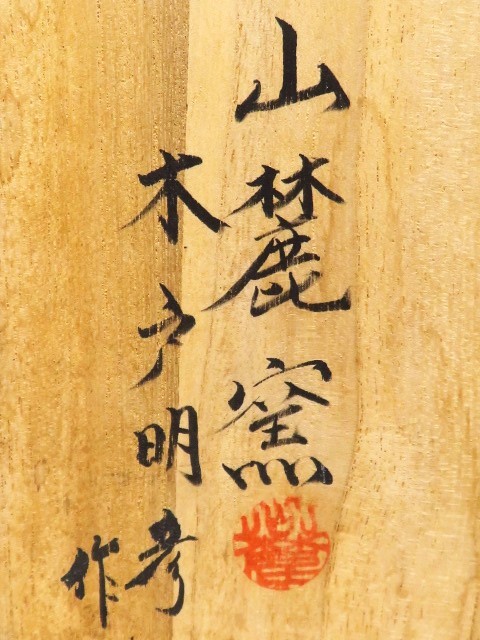 山麓窯
木戸明考
作